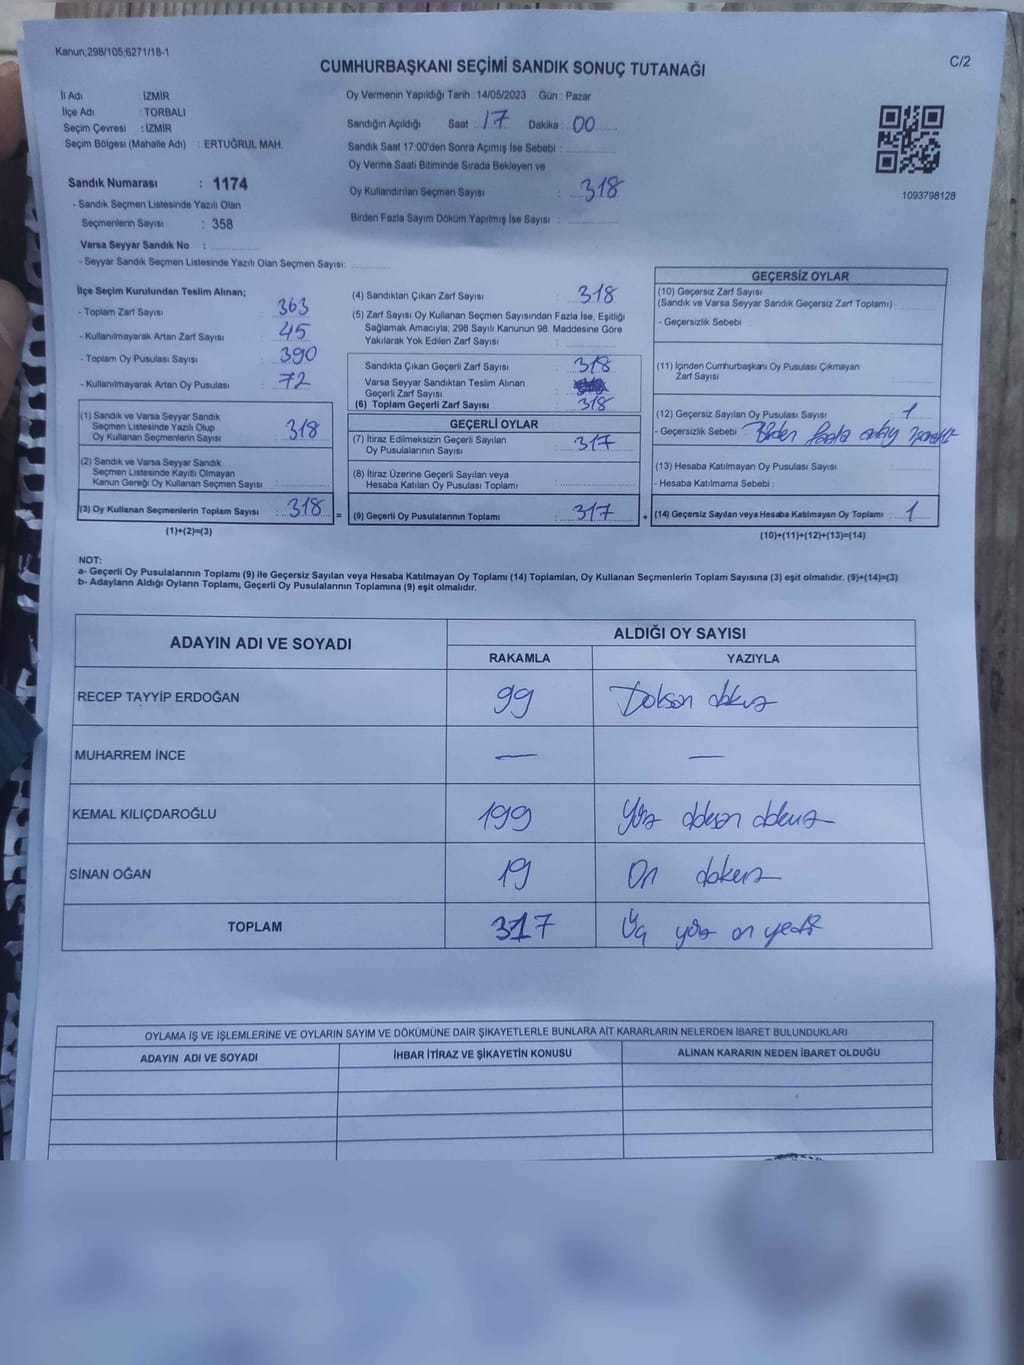 Kanun;298/105;6271/18-1
C/2
CUMHURBAŞKANI SEÇİMİ SANDIK SONUÇ TUTANAĞI
İl Adı İZMİR
İlçe Adı : TORBALI
Seçim Çevresi : İZMİR
Seçim Bölgesi (Mahalle Adı) : ERTUĞRUL MAH.
Sandık Numarası : 1174
- Sandık Seçmen Listesinde Yazılı Olan
Seçmenlerin Sayısı : 358
Varsa Seyyar Sandık No :
- Seyyar Sandık Seçmen Listesinde Yazılı Olan Seçmen Sayısı:
Oy Vermenin Yapıldığı Tarih : 14/05/2023 Gün : Pazar
Sandığın Açıldığı Saat : 17 Dakika : 00
Sandık Saat 17:00'den Sonra Açımış İse Sebebi :
Oy Verme Saati Bitiminde Sırada Bekleyen ve
Oy Kullandırılan Seçmen Sayısı : 318
Birden Fazla Sayım Döküm Yapılmış İse Sayısı :
1093798128
İlçe Seçim Kurulundan Teslim Alınan;
- Toplam Zarf Sayısı : 363
- Kullanılmayarak Artan Zarf Sayısı : 45
- Toplam Oy Pusulası Sayısı : 390
- Kullanılmayarak Artan Oy Pusulası : 72
(1) Sandık ve Varsa Seyyar Sandık
Seçmen Listesinde Yazılı Olup
Oy Kullanan Seçmenlerin Sayısı : 318
(2) Sandık ve Varsa Seyyar Sandık
Seçmen Listesinde Kayıtlı Olmayan
Kanun Gereği Oy Kullanan Seçmen Sayısı :
(3) Oy Kullanan Seçmenlerin Toplam Sayısı : 318 =
(1)+(2)=(3)
(4) Sandıktan Çıkan Zarf Sayısı : 318
(5) Zarf Sayısı Oy Kullanan Seçmen Sayısından Fazla İse, Eşitliği
Sağlamak Amacıyla, 298 Sayılı Kanunun 98. Maddesine Göre
Yakılarak Yok Edilen Zarf Sayısı :
Sandıkta Çıkan Geçerli Zarf Sayısı : 318
Varsa Seyyar Sandıktan Teslim Alınan
Geçerli Zarf Sayısı :
(6) Toplam Geçerli Zarf Sayısı : 318
GEÇERLİ OYLAR
(7) İtiraz Edilmeksizin Geçerli Sayılan
Oy Pusulalarının Sayısı : 317
(8) İtiraz Üzerine Geçerli Sayılan veya
Hesaba Katılan Oy Pusulası Toplamı :
(9) Geçerli Oy Pusulalarının Toplamı : 317 +
GEÇERSİZ OYLAR
(10) Geçersiz Zarf Sayısı
(Sandık ve Varsa Seyyar Sandık Geçersiz Zarf Toplamı) :
- Geçersizlik Sebebi :
(11) İçinden Cumhurbaşkanı Oy Pusulası Çıkmayan
Zarf Sayısı :
(12) Geçersiz Sayılan Oy Pusulası Sayısı : 1
- Geçersizlik Sebebi : Birden fazla aday işaretli
(13) Hesaba Katılmayan Oy Pusulası Sayısı :
- Hesaba Katılmama Sebebi :
(14) Geçersiz Sayılan veya Hesaba Katılmayan Oy Toplamı : 1
(10)+(11)+(12)+(13)=(14)
NOT:
a- Geçerli Oy Pusulalarının Toplamı (9) ile Geçersiz Sayılan veya Hesaba Katılmayan Oy Toplamı (14) Toplamları, Oy Kullanan Seçmenlerin Toplam Sayısına (3) eşit olmalıdır. (9)+(14)=(3)
b- Adayların Aldığı Oyların Toplamı, Geçerli Oy Pusulalarının Toplamına (9) eşit olmalıdır.
ADAYIN ADI VE SOYADI
ALDIĞI OY SAYISI
RAKAMLA YAZIYLA
RECEP TAYYİP ERDOĞAN 99 Doksan dokuz
MUHARREM İNCE — —
KEMAL KILIÇDAROĞLU 199 Yüz doksan dokuz
SİNAN OĞAN 19 On dokuz
TOPLAM 317 Üç yüz on yedi
OYLAMA İŞ VE İŞLEMLERİNE VE OYLARIN SAYIM VE DÖKÜMÜNE DAİR ŞİKAYETLERLE BUNLARA AİT KARARLARIN NELERDEN İBARET BULUNDUKLARI
ADAYIN ADI VE SOYADI İHBAR İTİRAZ VE ŞİKAYETİN KONUSU ALINAN KARARIN NEDEN İBARET OLDUĞU